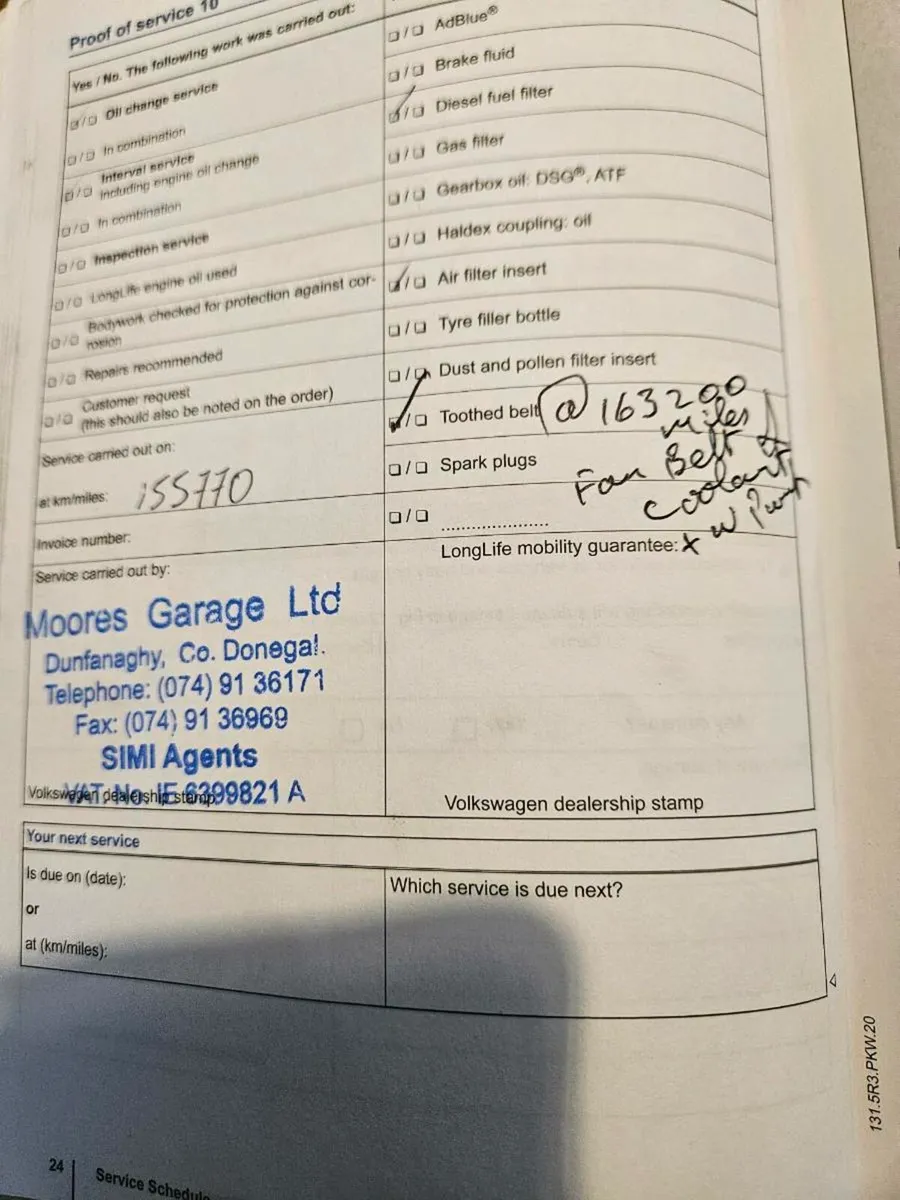 Proof of service 10
Yes / No. The following work was carried out:
Oil change service
In combination
Interval service
including engine oil change
In combination
Inspection service
LongLife engine oil used
Bodywork checked for protection against cor-
rosion
Repairs recommended
Customer request
(this should also be noted on the order)
Service carried out on:
at km/miles: 155770
Invoice number:
Service carried out by:
Moores Garage Ltd
Dunfanaghy, Co. Donegal.
Telephone: (074) 91 36171
Fax: (074) 91 36969
SIMI Agents
VAT No. IE 6399821 A
Volkswagen dealership stamp
AdBlue®
Brake fluid
Diesel fuel filter
Gas filter
Gearbox oil: DSG®, ATF
Haldex coupling: oil
Air filter insert
Tyre filler bottle
Dust and pollen filter insert
Toothed belt @ 163200
miles
Spark plugs
Fan Belt
Coolant
W Pump
LongLife mobility guarantee: x
Volkswagen dealership stamp
Your next service
Is due on (date):
or
at (km/miles):
Which service is due next?
131.5R3.PKW.20
24
Service Schedule